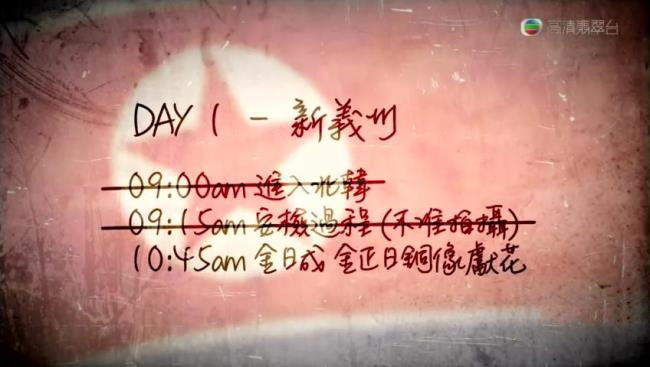 高清翡翠台
DAY 1 - 新義州
09:00am 進入北韓
09:15am 安檢過程(不准拍攝)
10:45am 金日成 金正日銅像獻花